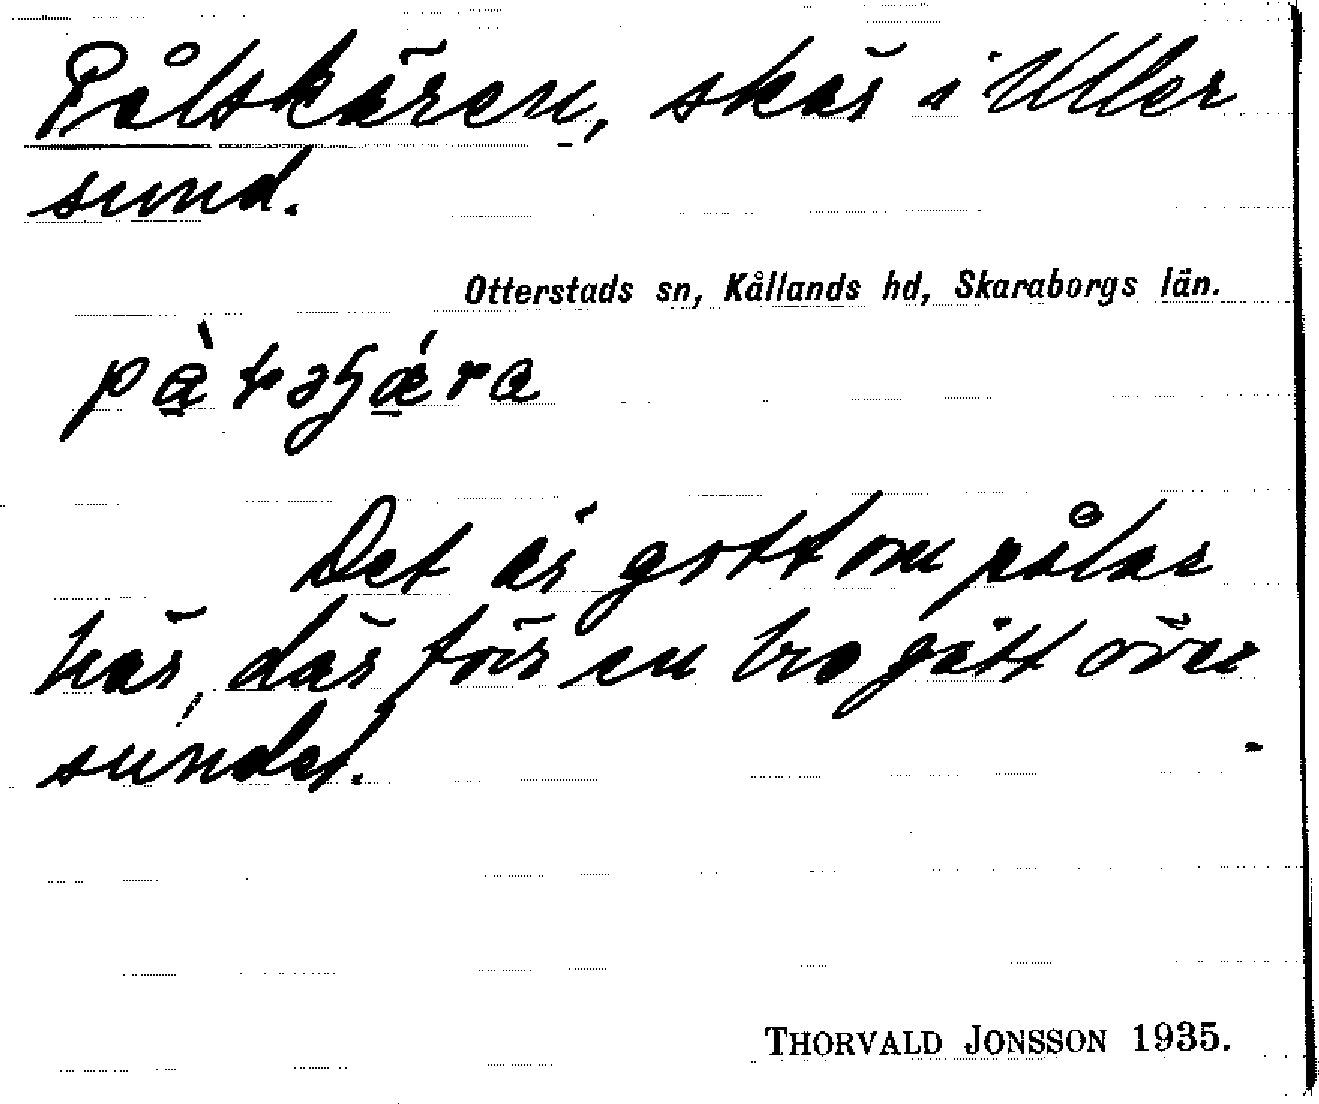 Pålskären, skär i Uller
sund.
Otterstads sn, Kållands hd, Skaraborgs län.
Det är gott om pålar
här, där förr en bro gått över
sundet.
THORVALD JONSSON 1935.